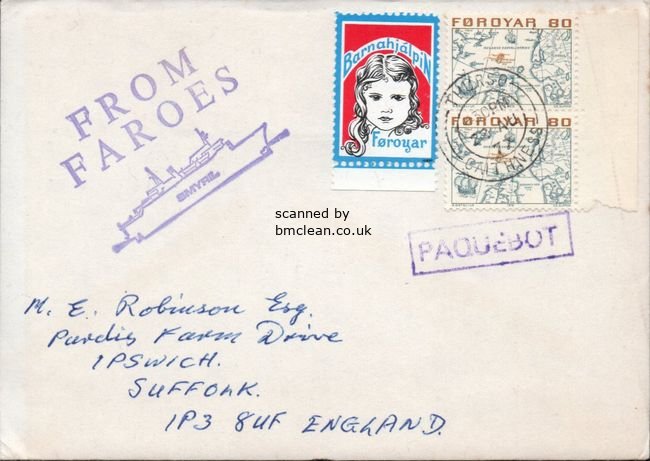 FROM
FAROES
SMYRIL
Barnahjálpin
Føroyar
FØROYAR 80
FØROYAR 80
THURSO
CAITHNESS
scanned by
bmclean.co.uk
PAQUEBOT
M. E. Robinson Esq.
Purdis Farm Drive
IPSWICH.
SUFFOLK.
IP3 8UF ENGLAND.